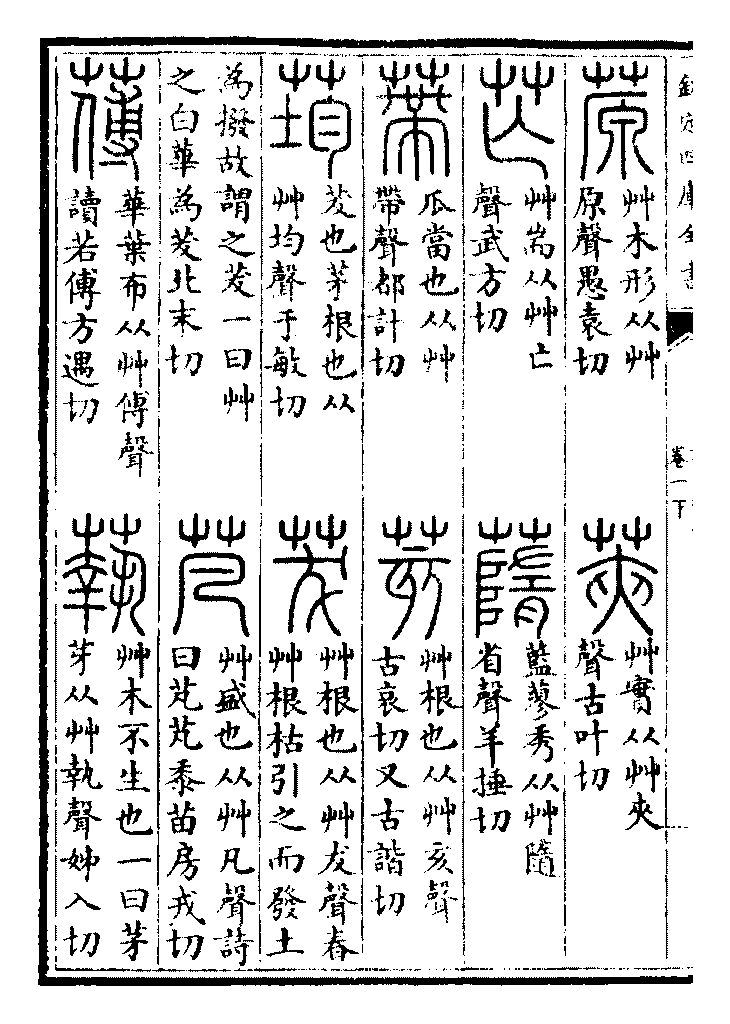 欽定四庫全書　卷一下
蒝
艸木形从艸
原聲愚袁切
莢
艸實从艸夾
聲古叶切
芒
艸耑从艸亡
聲武方切
䔺
藍蓼秀从艸隨
省聲羊捶切
蔕
瓜當也从艸
帶聲都計切
荄
艸根也从艸亥聲
古哀切又古諧切
荺
茇也茅根也从
艸均聲于敏切
茇
艸根也从艸犮聲春
艸根枯引之而發土
為撥故謂之茇一曰艸
之白華為茇北末切
芃
艸盛也从艸凡聲詩
曰芃芃黍苗房戎切
䔰
華葉布从艸傅聲
讀若傅方遇切
蓻
艸木不生也一曰茅
芽从艸執聲姊入切